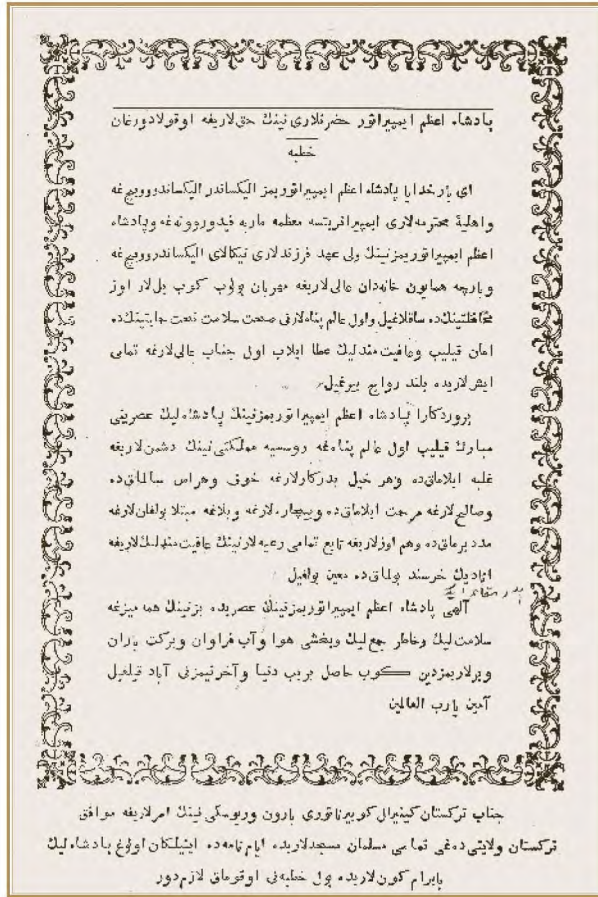 پادشاه اعظم ایمپیراتور حضرتلاری نینك حق لاریغه اوقولادورغان
خطبه
ای بار خدایا پادشاه اعظم ایمپیراتوریمز الیکساندر الیکساندروویچ غه
واهلیهٔ محترمه لاری ایمپیراتریتسه معظمه ماریه فیدوروونه غه وپادشاه
اعظم ایمپیراتوریمزنینك ولی عهد فرزندلاری نیکالای الیکساندروویچ غه
وبارچه همایون خاندان عالی لاریغه مهربان بولوب کوب ییل لار اوز
محافظتینكده ساقلاغیل واول عالم پناه لارنی صحت سلامت نعمت حمایتینكده
امان قیلیب وعافیت مندلیك عطا ایلاب اول جناب عالی لارغه تمامی
ایش لاریده بلند رواج بیرغیل
پروردکارا پادشاه اعظم ایمپیراتوریمزنینك پادشاه لیك عصرینی
مبارك قیلیب اول عالم پناه غه روسیه مملکتی نینك دشمن لاریغه
غلبه ایلاماق ده وهر خیل بدرکارلارغه خوف وهراس سالماق ده
وصالح لارغه مرحمت ایلاماق ده وبیچاره لارغه وبلاغه مبتلا بولغان لارغه
مدد برماق ده وهم اوزلاریغه تابع تمامی رعیه لارنینك عافیت مندلیك لاریغه
اتادیك خرسند بولماق ده معین بولغیل
آلهی پادشاه اعظم ایمپیراتوریمزنینك عصریده بزنینك همه میزغه
سلامت لیك وخاطر جمع لیك ویخشی هوا وآب فراوان وبرکت باران
ویرلاریمزدین کوب حاصل بریب دنیا وآخرتیمزنی آباد قیلغیل
آمین یارب العالمین
جناب ترکستان کینیرال کوبیرناتوری بارون وریوسکی نینك امرلاریغه موافق
ترکستان ولایتی ده غی تمامی مسلمان مسجدلاریده ایام نامه ده ایتیلکان اولوغ پادشاه لیك
بایرام کون لاریده بول خطبه نی اوقوماق لازم دور